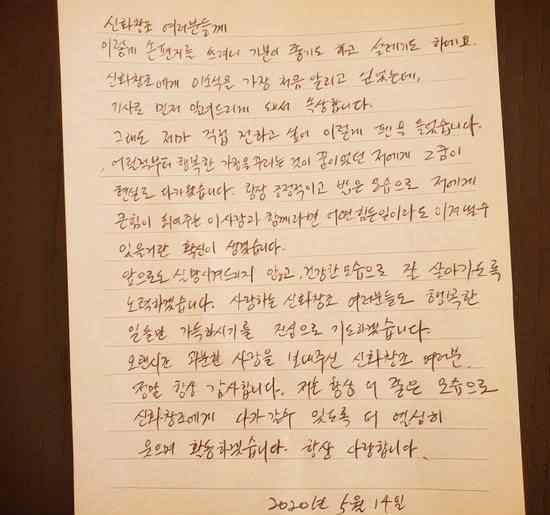 신화창조 여러분들께
이렇게 손편지를 쓰려니 기분이 좋기도 하고 설레기도 하네요.
신화창조에게 이소식을 가장 처음 알리고 싶었는데,
기사로 먼저 알려드리게 돼서 속상합니다.
그래도 제가 직접 전하고 싶어 이렇게 펜을 들었습니다.
어린적부터 행복한 가정을 꾸리는 것이 꿈이었던 저에게 그 꿈이
현실로 다가왔습니다. 항상 긍정적이고 밝은 모습으로 저에게
큰힘이 되어주는 이사람과 함께라면 어떤 힘든일이라도 이겨낼수
있을거란 확신이 생겼습니다.
앞으로도 실망시켜드리지 않고, 건강한 모습으로 잘 살아가도록
노력하겠습니다. 사랑하는 신화창조 여러분들도 행복한
일들만 가득하시기를 진심으로 기도하겠습니다.
오랜시간 과분한 사랑을 보내주신 신화창조 여러분
정말 항상 감사합니다. 저는 항상 더 좋은 모습으로
신화창조에게 다가갈수 있도록 더 열심히
웃으며 활동하겠습니다. 항상 사랑합니다.
2020년 5월 14일